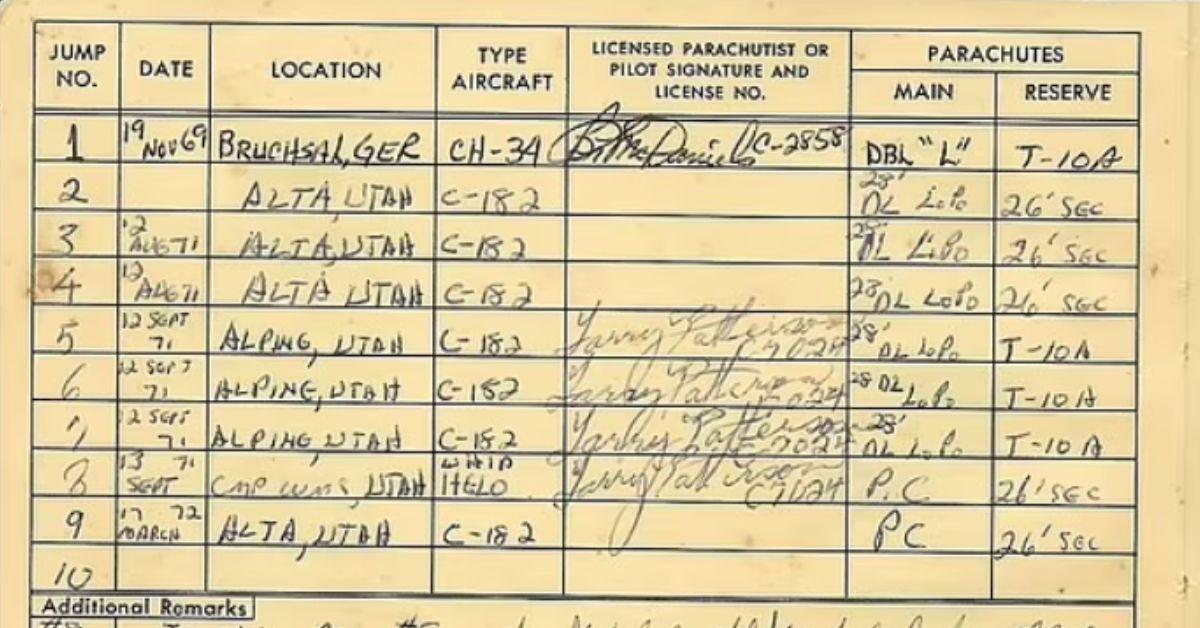 JUMP NO. DATE LOCATION TYPE AIRCRAFT LICENSED PARACHUTIST OR PILOT SIGNATURE AND LICENSE NO. PARACHUTES
MAIN RESERVE
1 19 NOV 69 BRUCHSAL, GER CH-34 B. McDaniels C-2858 DBL "L" T-10A
2 ALTA, UTAH C-182 28' DL LoPo 26' SEC
3 12 AUG 71 ALTA, UTAH C-182 28' DL LoPo 26' SEC
4 12 AUG 71 ALTA UTAH C-182 28' DL LoPo 26' SEC
5 12 SEPT 71 ALPINE, UTAH C-182 Larry Patterson C7024 28' DL LoPo T-10A
6 12 SEPT 71 ALPINE, UTAH C-182 Larry Patterson C7024 28 DL LoPo T-10A
7 12 SEPT 71 ALPINE, UTAH C-182 Larry Patterson C-7024 28' DL LoPo T-10A
8 13 SEPT 71 CMP WMS, UTAH HELO Larry Patterson C7024 P.C 26' SEC
9 17 MARCH 72 ALTA, UTAH C-182 PC 26' SEC
10
Additional Remarks